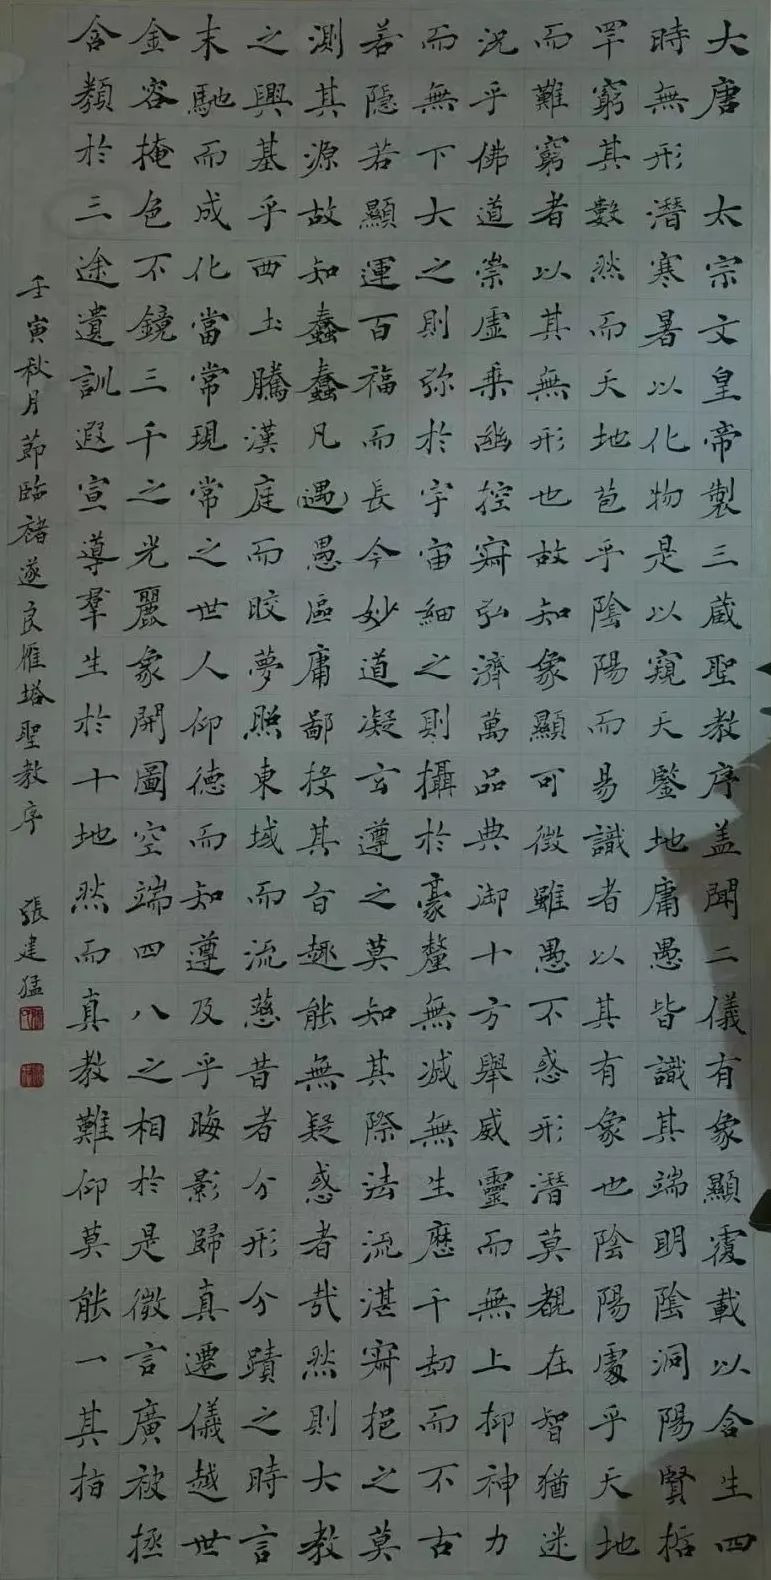 大唐 太宗文皇帝製三蔵聖教序盖聞二儀有象顯覆載以含生四
時無形潛寒暑以化物是以窺天鑒地庸愚皆識其端明陰洞陽賢哲
罕窮其數然而天地苞乎陰陽而易識者以其有象也陰陽處乎天地
而難窮者以其無形也故知象顯可徵雖愚不惑形潛莫覩在智猶迷
況乎佛道崇虛乘幽控寂弘濟萬品典御十方舉威靈而無上抑神力
而無下大之則弥於宇宙細之則攝於豪釐無滅無生歷千劫而不古
若隱若顯運百福而長今妙道凝玄遵之莫知其際法流湛寂挹之莫
測其源故知蠢蠢凡(遇)愚區庸鄙投其旨趣能無疑惑者哉然則大教
之興基乎西土騰漢庭而皎夢照東域而流慈昔者分形分蹟之時言
末馳而成化當常現常之世人仰德而知遵及乎晦影歸真遷儀越世
金容掩色不鏡三千之光麗象開圖空端四八之相於是微言廣被拯
含類於三途遺訓遐宣導羣生於十地然而真教難仰莫能一其指
壬寅秋月節臨褚遂良雁塔聖教序 張建猛